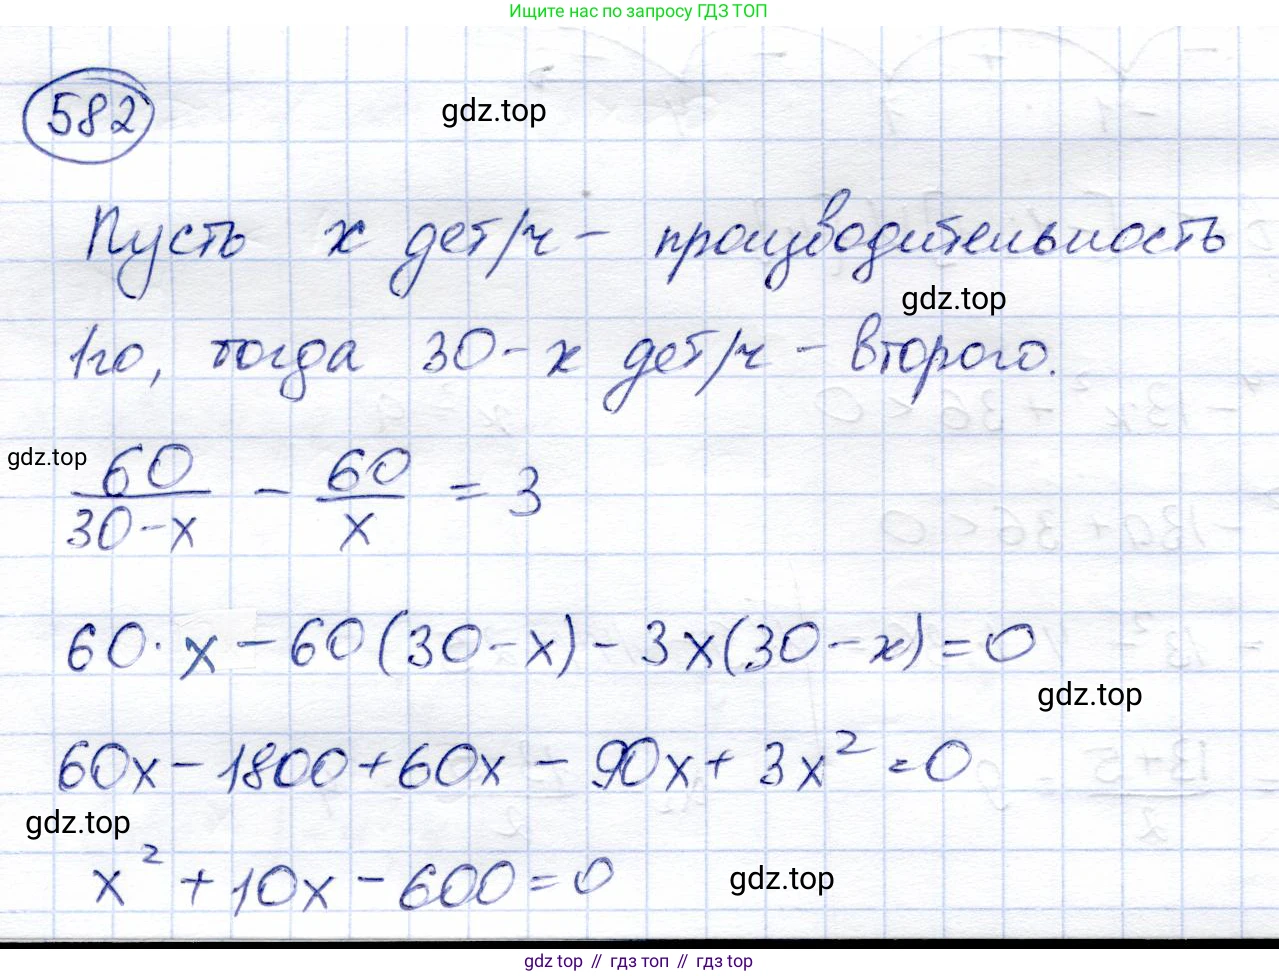 Ищите нас по запросу ГДЗ ТОП
582
gdz.top
Пусть x дет/ч – производительность
gdz.top
1го, тогда 30 - x дет/ч – второго.
gdz.top
60/(30-x) - 60/x = 3
60·x - 60(30-x) - 3x(30-x) = 0
gdz.top
60x - 1800 + 60x - 90x + 3x² = 0
gdz.top
x² + 10x - 600 = 0
gdz.top
gdz top // гдз топ // гдз top